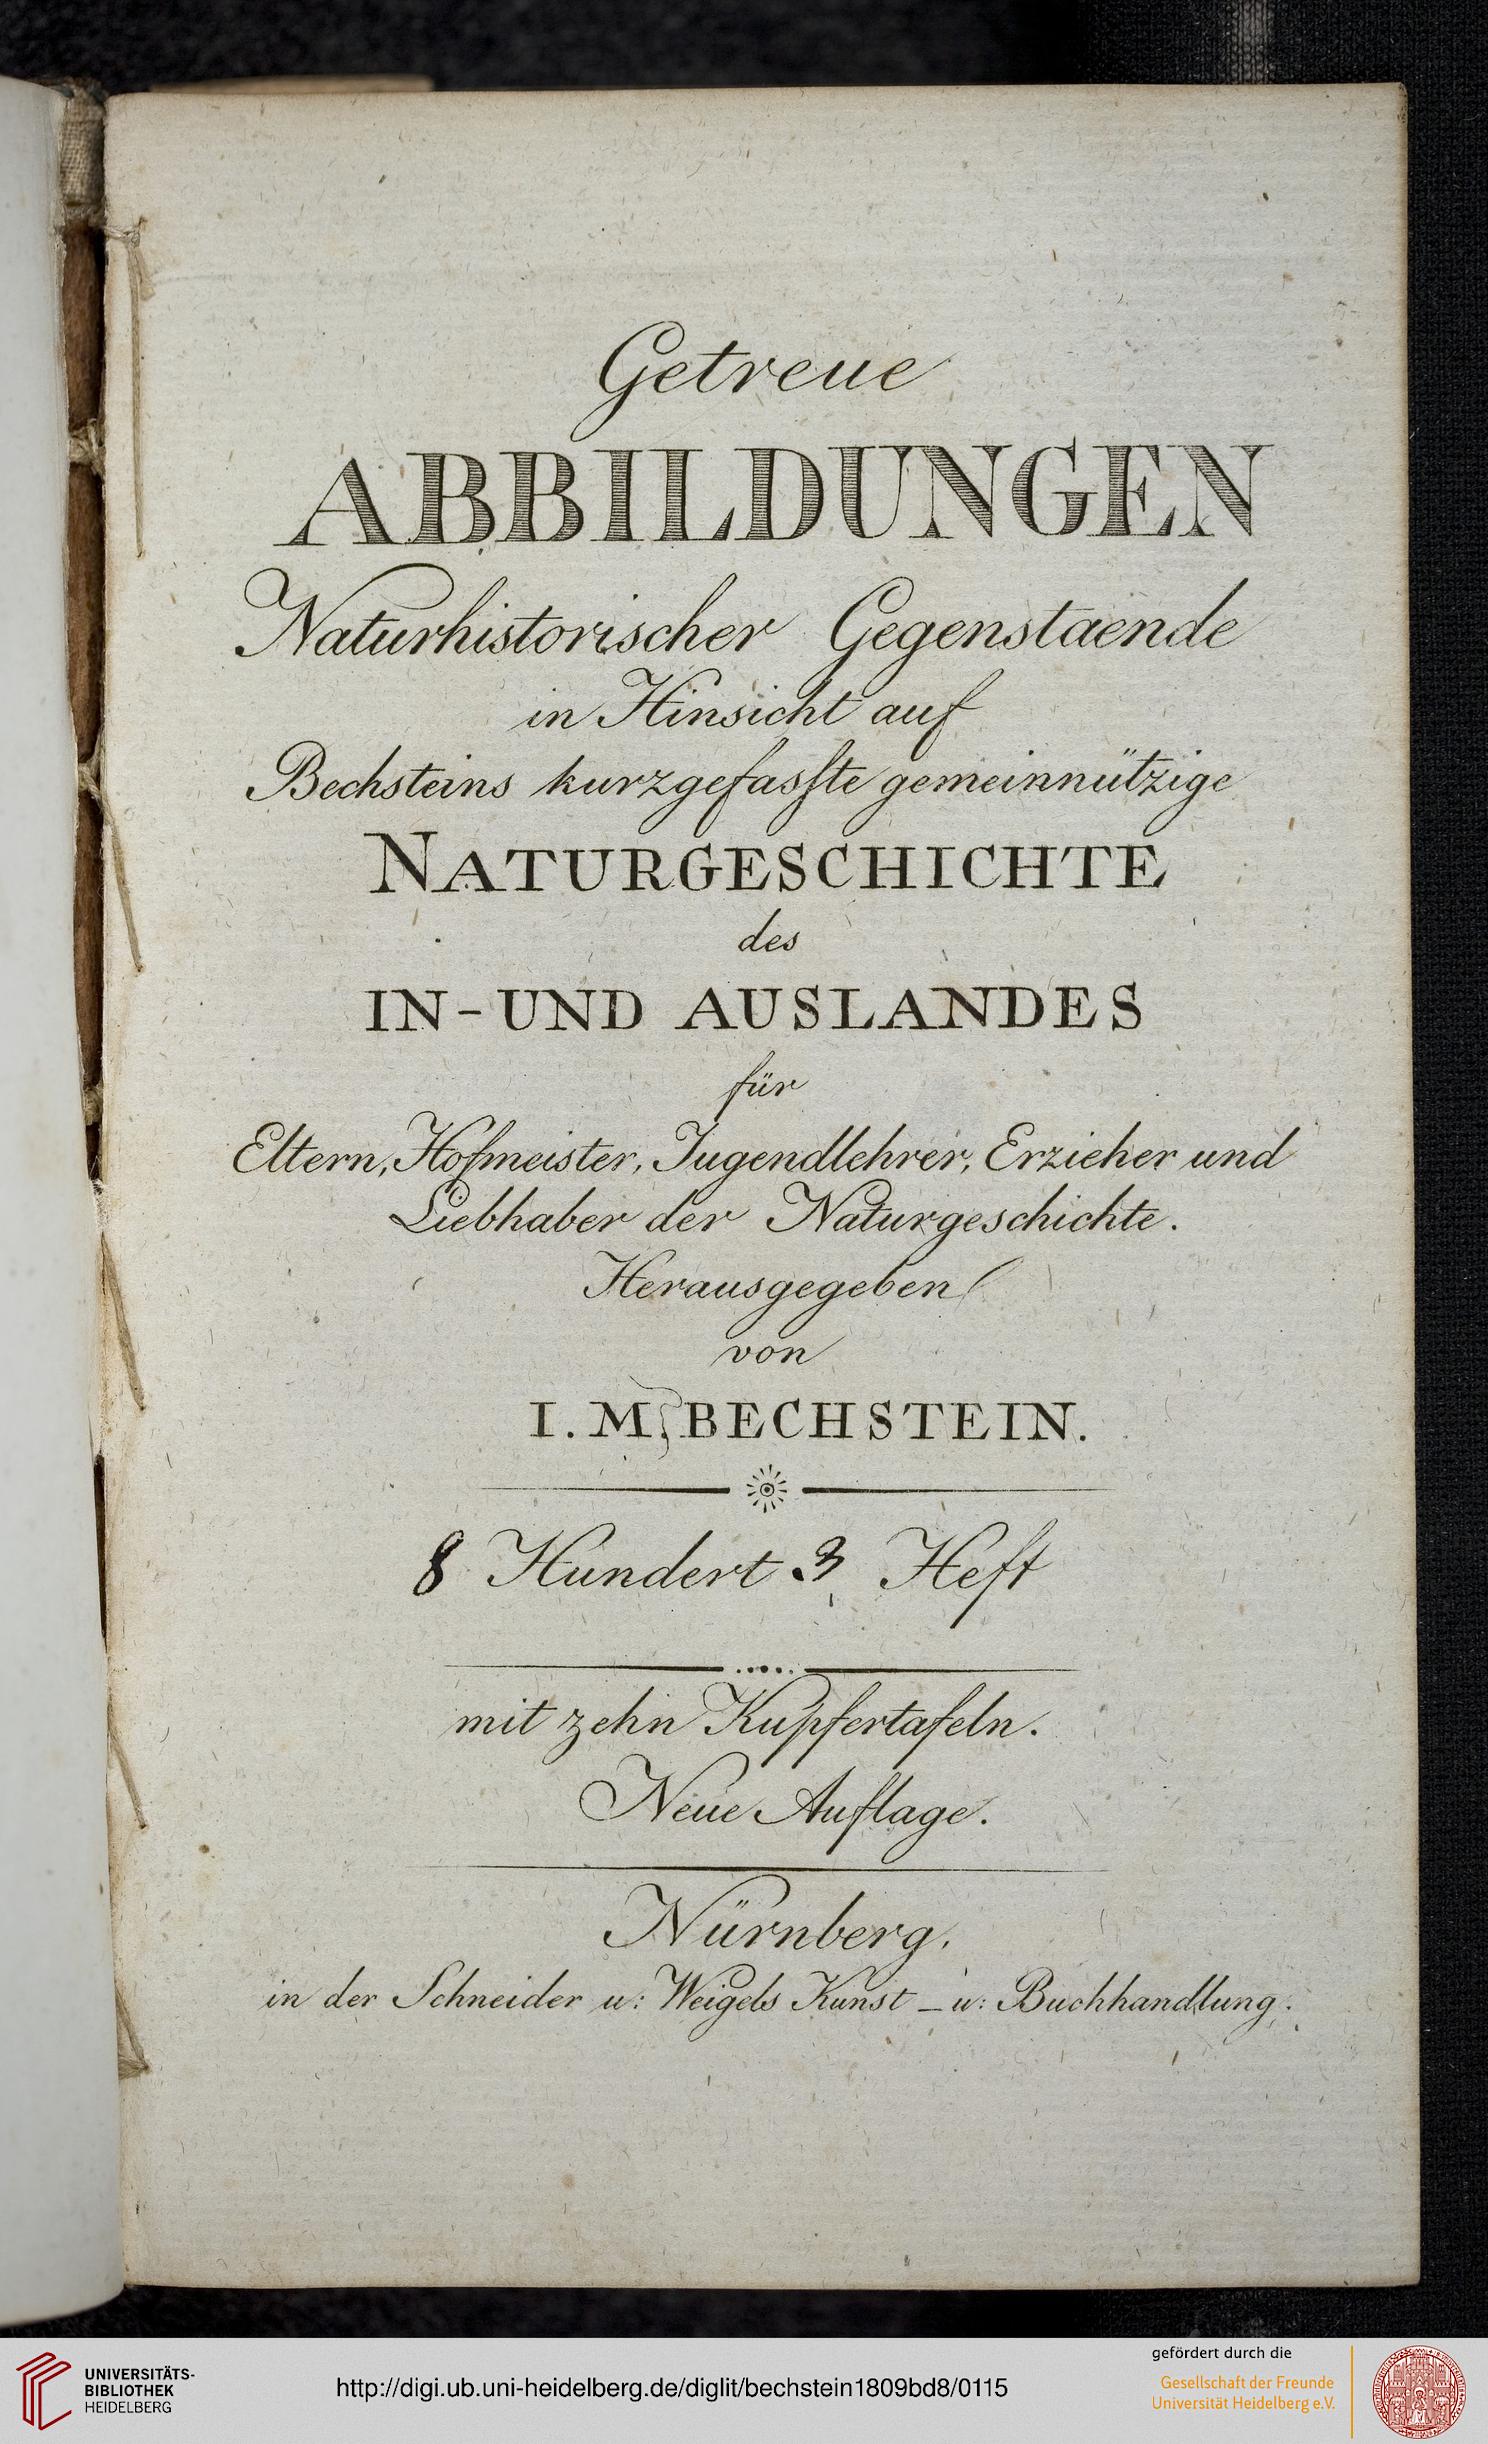 Getreue
ABBILDUNGEN
Naturhistorischer Gegenstaende
in Hinsicht auf
Bechsteins kurzgefasſte gemeinnützige
NATURGESCHICHTE
des
IN-UND AUSLANDES
für
Eltern, Hofmeister, Jugendlehrer, Erzieher und
Liebhaber der Naturgeschichte.
Herausgegeben
von
I. M. BECHSTEIN.
8 Hundert 3 Heft
mit zehn Kupfertafeln.
Neue Auflage.
Nürnberg,
in der Schneider u: Weigels Kunst - u: Buchhandlung.
UNIVERSITÄTS-
BIBLIOTHEK
HEIDELBERG
http://digi.ub.uni-heidelberg.de/diglit/bechstein1809bd8/0115
gefördert durch die
Gesellschaft der Freunde
Universität Heidelberg e.V.